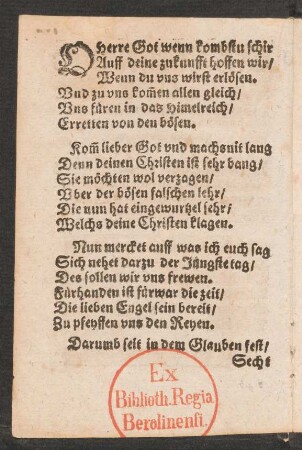 O Herre Got wenn kombstu schir
Auff deine zukunfft hoffen wir/
Wenn du vns wirst erlösen.
Vnd zu vns kom̃en allen gleich/
Vns füren in das Himelreich/
Erretten von den bösen.
Kom̃ lieber Got vnd machs nit lang
Denn deinen Christen ist sehr bang/
Sie möchten wol verzagen/
Vber der bösen falschen lehr/
Die nun hat eingewurtzel sehr/
Welchs deine Christen klagen.
Nun mercket auff was ich euch sag
Sich nehet darzu der Jüngste tag/
Des sollen wir vns frewen.
Fürhanden ist fürwar die zeit/
Die lieben Engel sein bereit/
Zu pfeyffen vns den Reyen.
Darumb seit in dem Glauben fest/
Secht
Ex
Biblioth. Regia
Berolinensi.